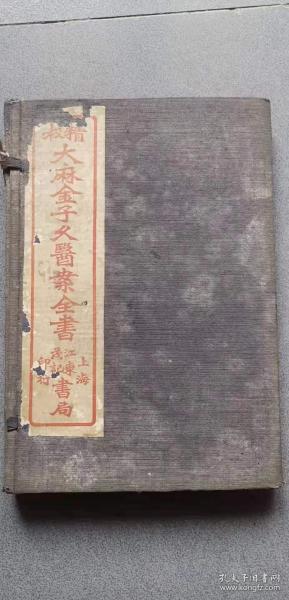 精校
大麻金子久醫案全書
上海
江東
茂記
書局
印行
孔夫子旧书网
kongfz.com